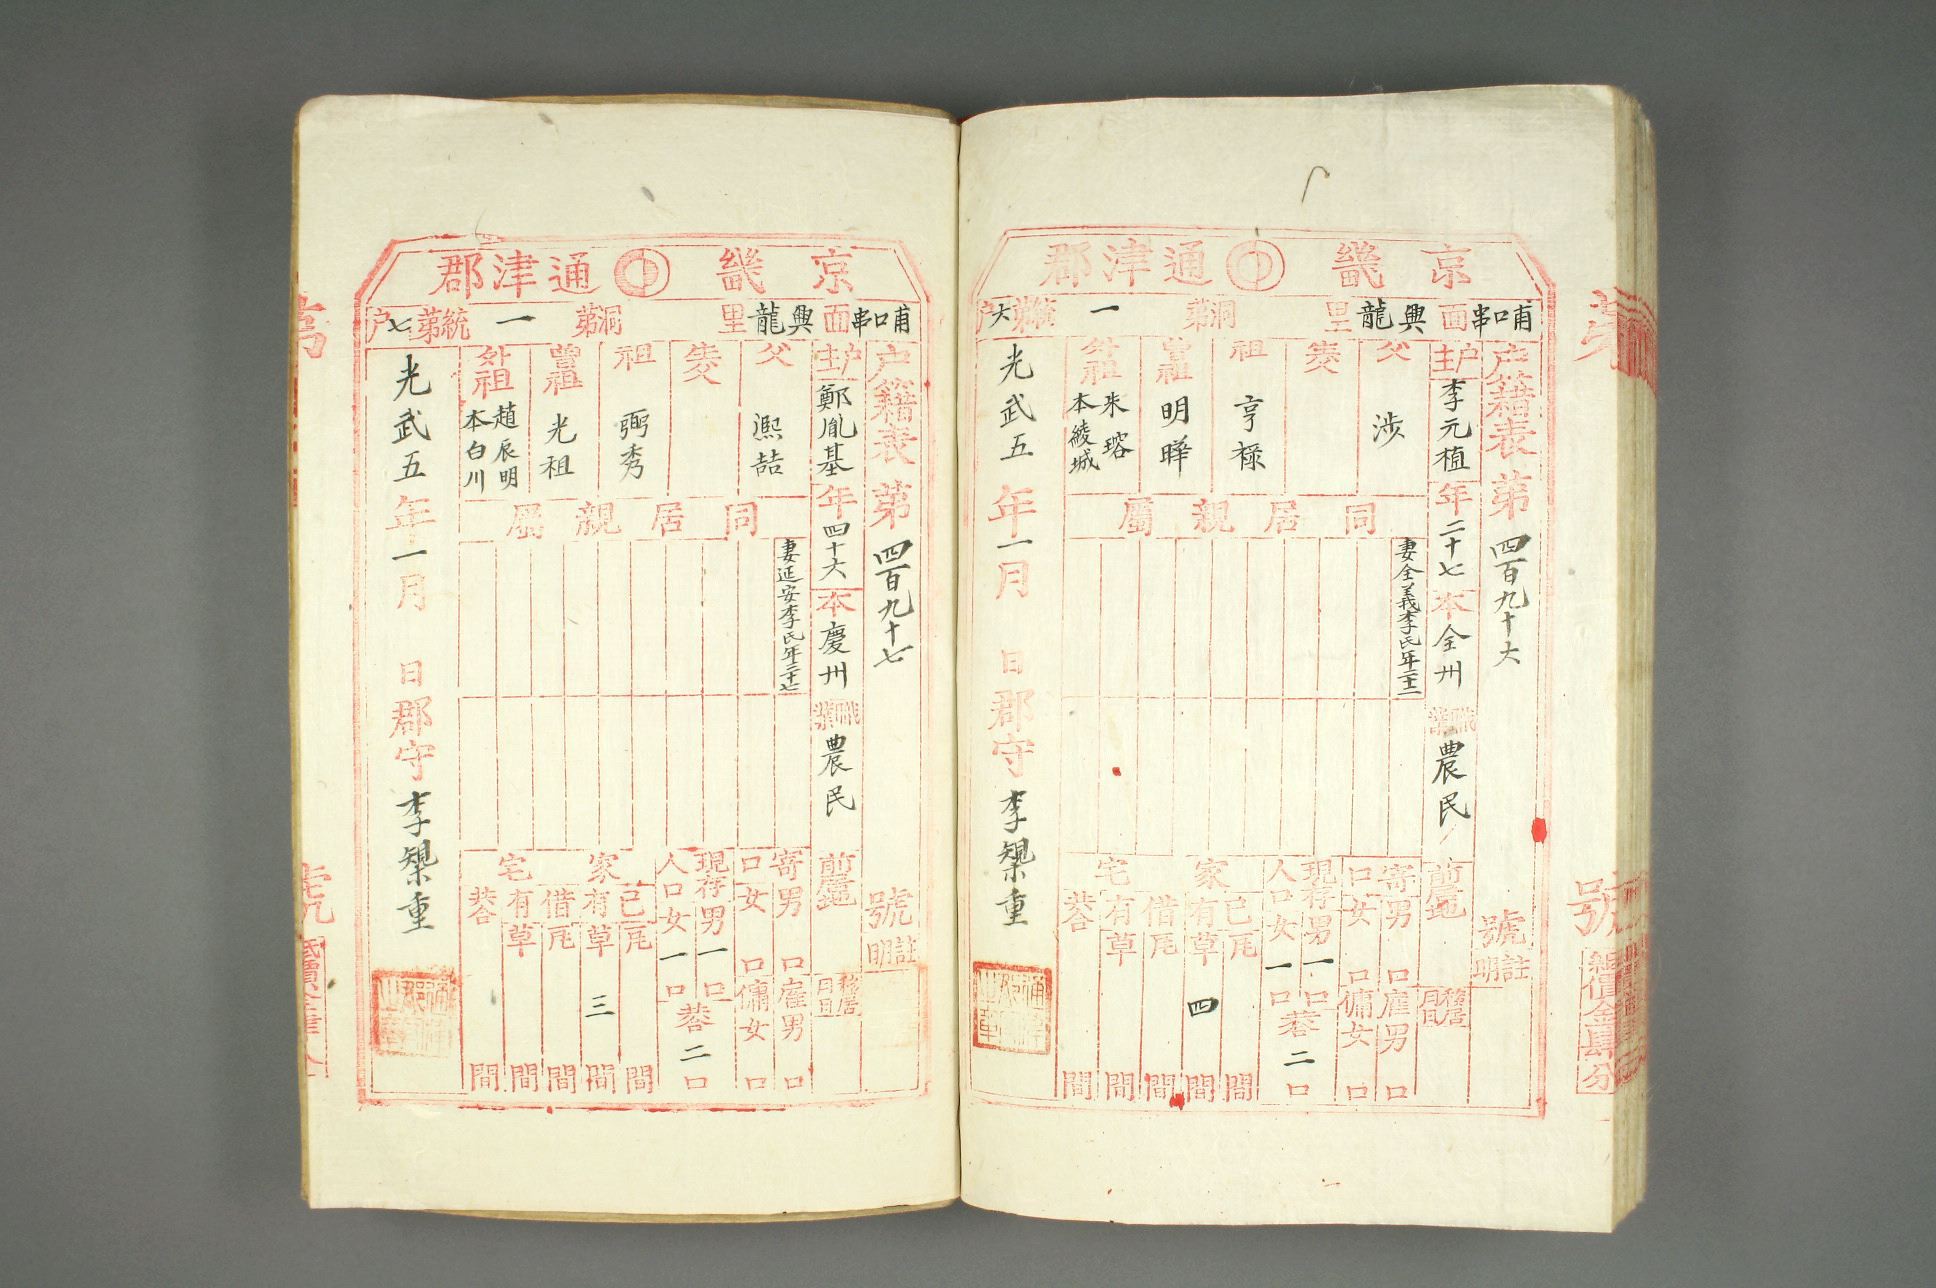 京畿 通津郡
哺口串面 興龍里 洞第 一 統第六戶
戶籍表 第 四百九十六 號
註明
戶主 李元植 年 二十七 本 全州 職業 農民
前居地
移居月日
父 涉
生父
祖 亨祿
曾祖 明曄
外祖 朱瑢 本綾城
同居親屬
妻全義李氏年二十二
寄口 男 口 女 口
雇男 口 傭女 口
現存人口 男 一口 女 一口
共合 二 口
家宅
己有 瓦 間
草 四 間
借有 瓦 間
草 間
共合 間
光武五年一月 日 郡守 李榘重
通津郡守之章
第 號
紙價金肆分
京畿 通津郡
哺口串面 興龍里 洞第 一 統第七戶
戶籍表 第 四百九十七 號
註明
戶主 鄭胤基 年 四十六 本 慶州 職業 農民
前居地
移居月日
父 熙喆
生父
祖 弼秀
曾祖 光祖
外祖 趙辰明 本白川
同居親屬
妻延安李氏年三十七
寄口 男 口 女 口
雇男 口 傭女 口
現存人口 男 一口 女 一口
共合 二 口
家宅
己有 瓦 間
草 三 間
借有 瓦 間
草 間
共合 間
光武五年一月 日 郡守 李榘重